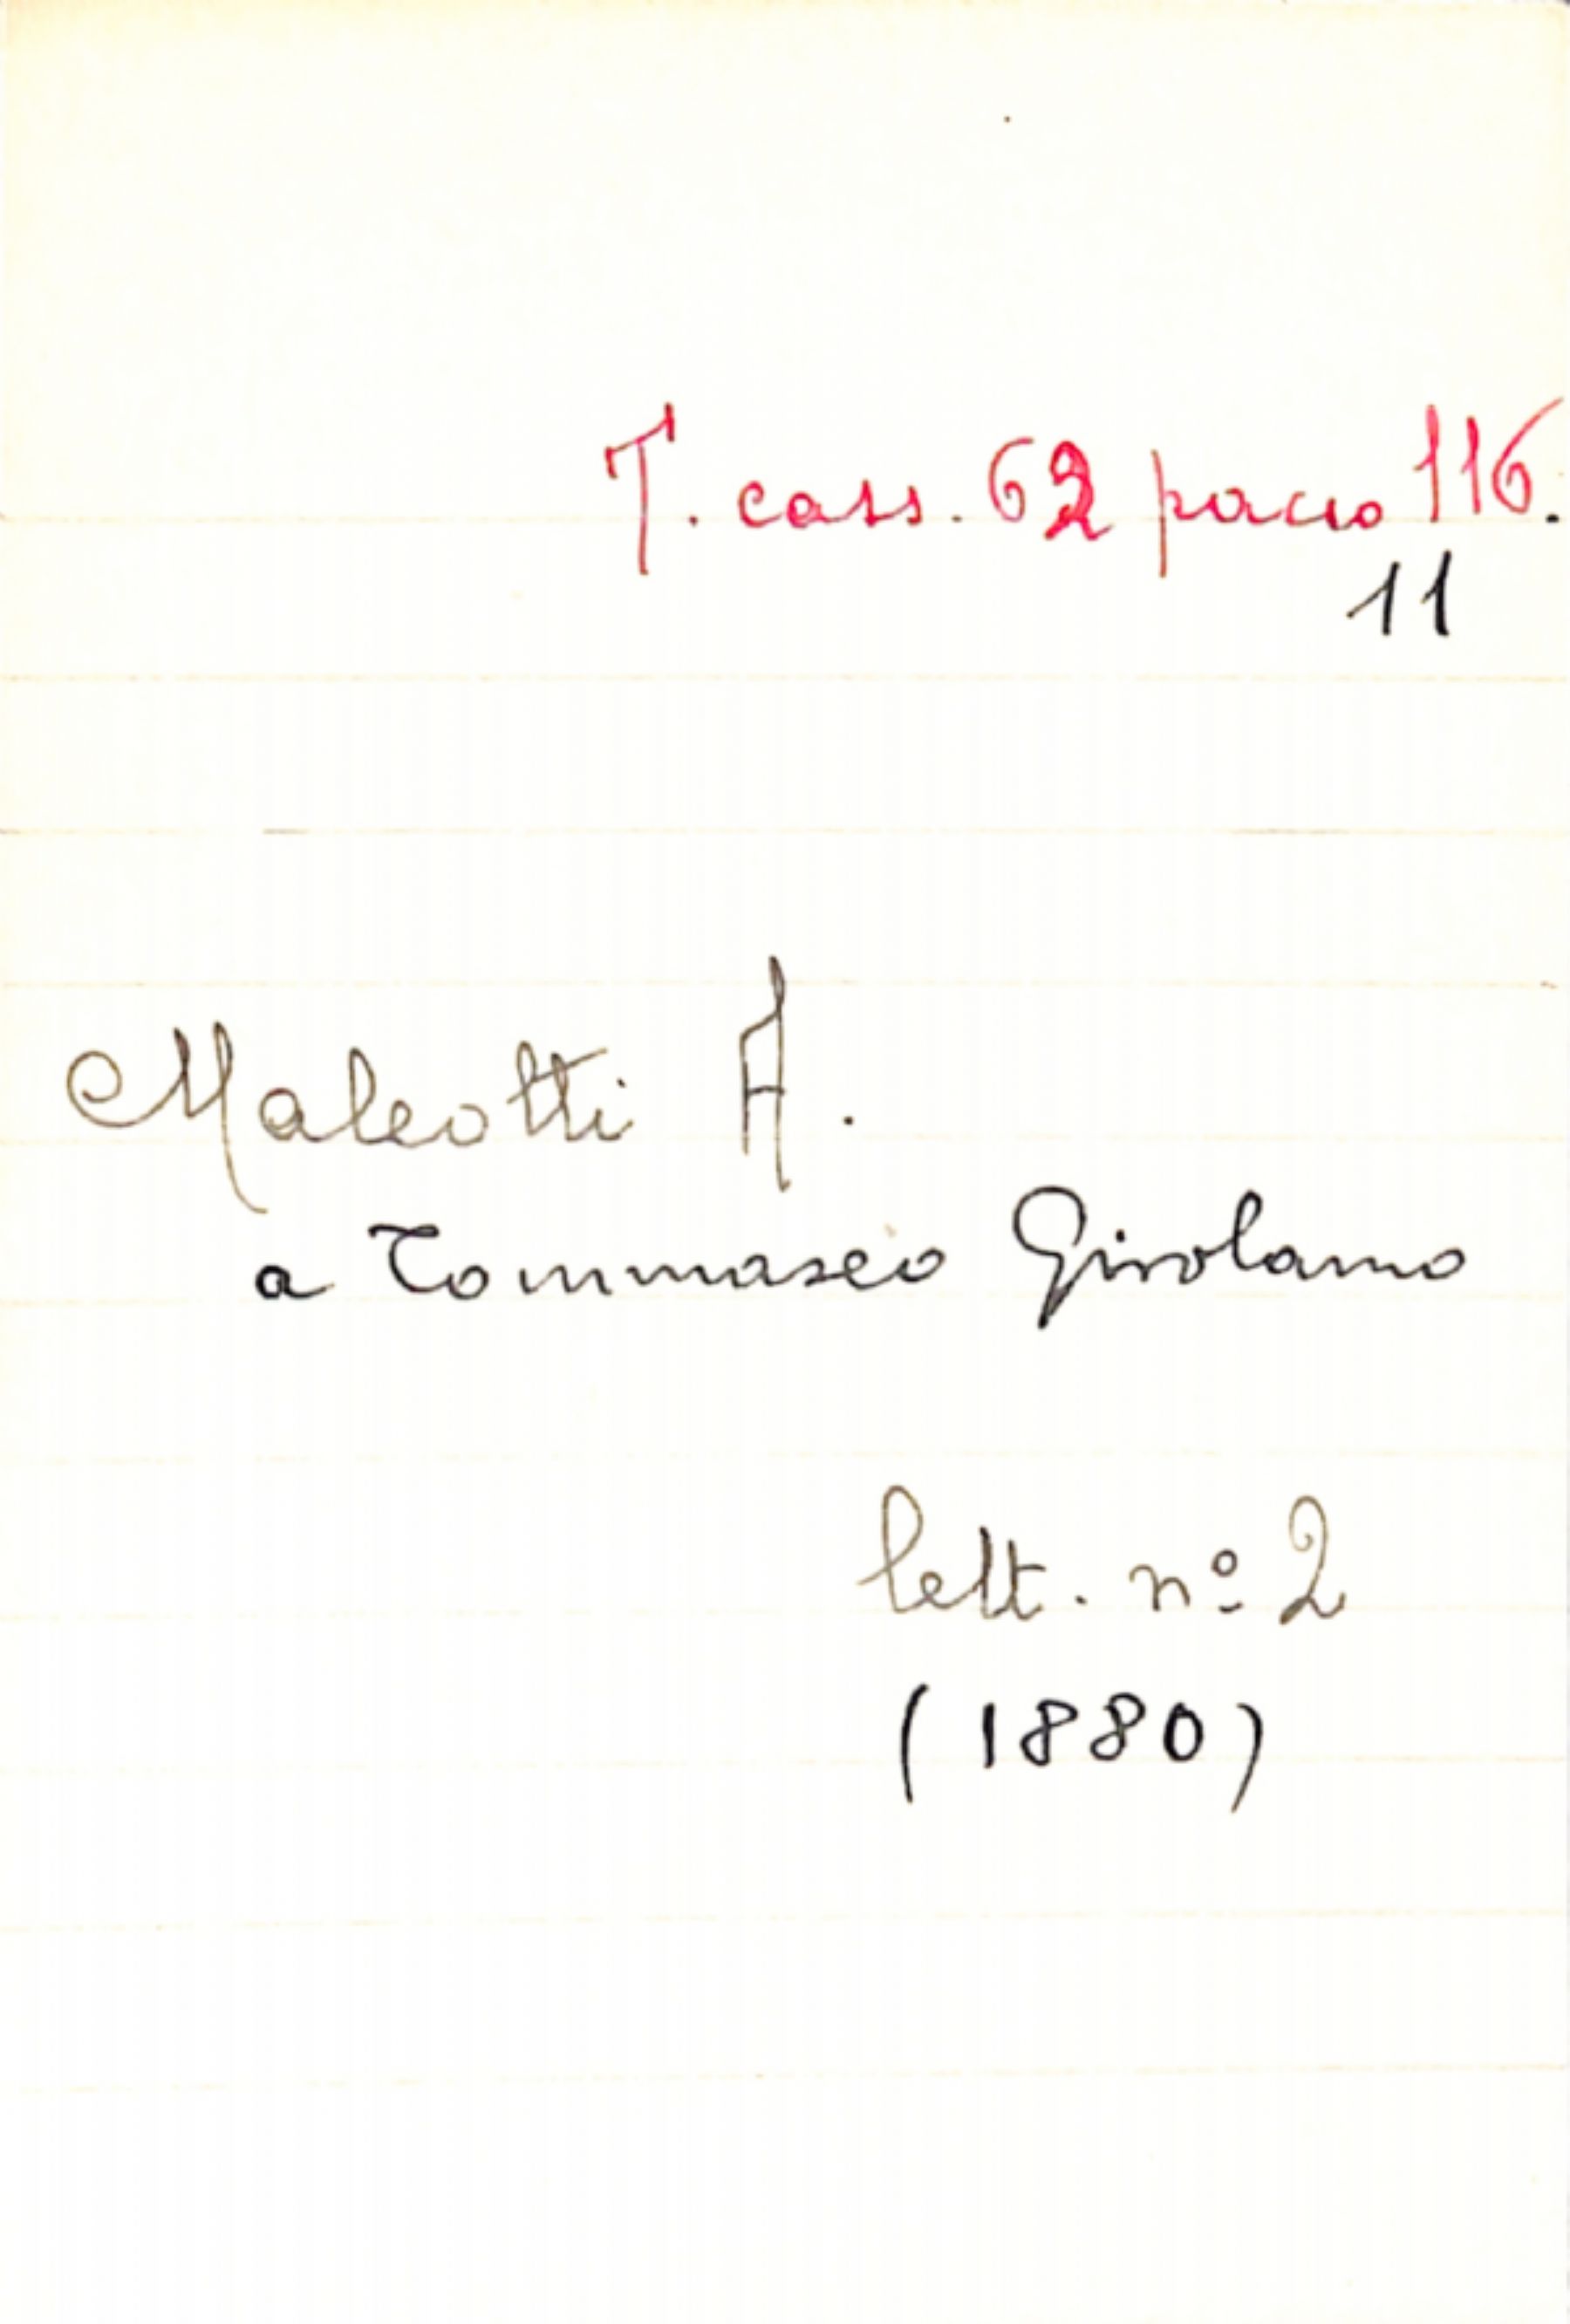 T. cass. 62 pacco 116.
11
Maleotti A.
a Tommaseo Girolamo
lett. nº 2
(1880)